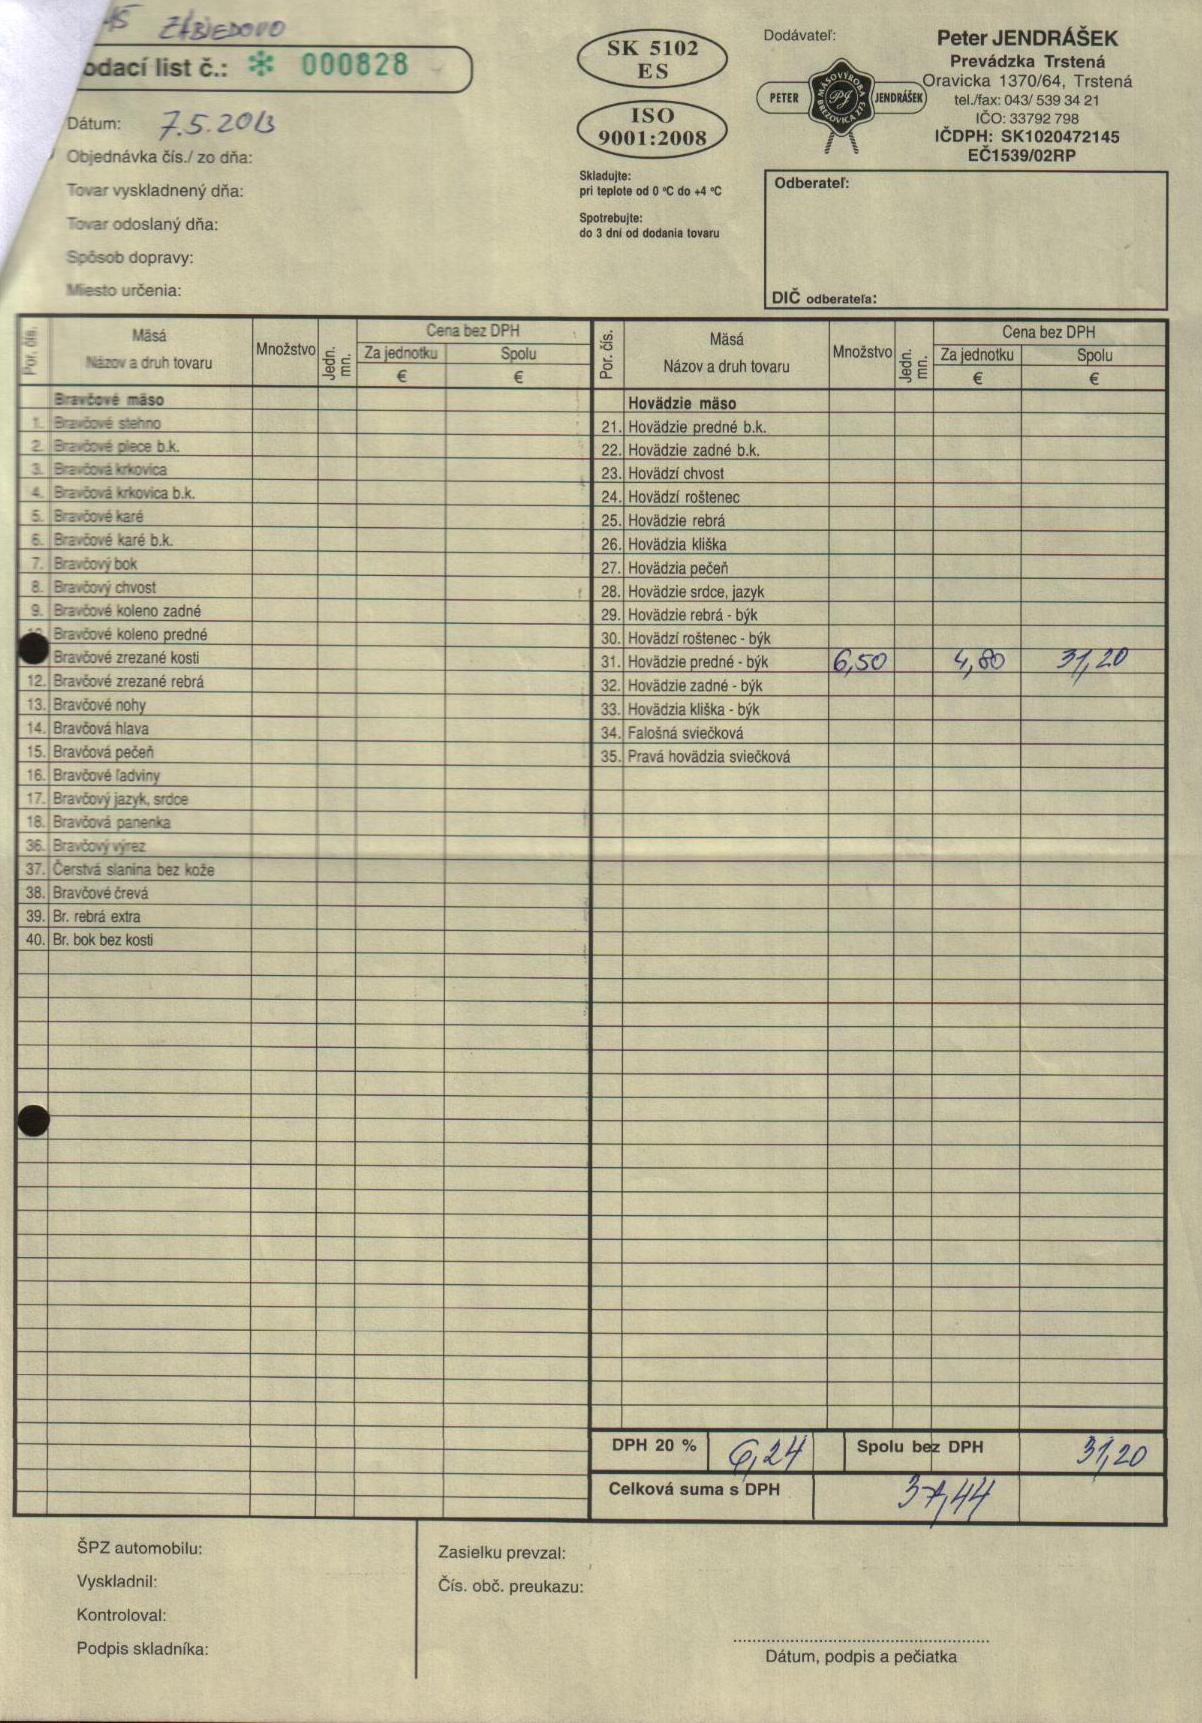 ZÁBIEDOVO
odací list č.: ✻ 000828
Dátum: 7.5.2013
Objednávka čís./ zo dňa:
Tovar vyskladnený dňa:
Tovar odoslaný dňa:
Spôsob dopravy:
Miesto určenia:
SK 5102
ES
ISO
9001:2008
Skladujte:
pri teplote od 0 °C do +4 °C
Spotrebujte:
do 3 dní od dodania tovaru
Dodávateľ:
PETER MÄSOVÝROBA PJ BREZOVICA 273 JENDRÁŠEK
Peter JENDRÁŠEK
Prevádzka Trstená
Oravicka 1370/64, Trstená
tel./fax: 043/ 539 34 21
IČO: 33792 798
IČDPH: SK1020472145
EČ1539/02RP
Odberateľ:
DIČ odberateľa:
Por. čís. Mäsá Názov a druh tovaru Množstvo Jedn. mn. Cena bez DPH Za jednotku € Spolu €
Bravčové mäso
1. Bravčové stehno
2. Bravčové plece b.k.
3. Bravčová krkovica
4. Bravčová krkovica b.k.
5. Bravčové karé
6. Bravčové karé b.k.
7. Bravčový bok
8. Bravčový chvost
9. Bravčové koleno zadné
Bravčové koleno predné
Bravčové zrezané kosti
12. Bravčové zrezané rebrá
13. Bravčové nohy
14. Bravčová hlava
15. Bravčová pečeň
16. Bravčové ľadviny
17. Bravčový jazyk, srdce
18. Bravčová panenka
36. Bravčový výrez
37. Čerstvá slanina bez kože
38. Bravčové črevá
39. Br. rebrá extra
40. Br. bok bez kosti
Por. čís. Mäsá Názov a druh tovaru Množstvo Jedn. mn. Cena bez DPH Za jednotku € Spolu €
Hovädzie mäso
21. Hovädzie predné b.k.
22. Hovädzie zadné b.k.
23. Hovädzí chvost
24. Hovädzí roštenec
25. Hovädzie rebrá
26. Hovädzia kliška
27. Hovädzia pečeň
28. Hovädzie srdce, jazyk
29. Hovädzie rebrá - býk
30. Hovädzí roštenec - býk
31. Hovädzie predné - býk 6,50 4,80 31,20
32. Hovädzie zadné - býk
33. Hovädzia kliška - býk
34. Falošná sviečková
35. Pravá hovädzia sviečková
DPH 20 % 6,24 Spolu bez DPH 31,20
Celková suma s DPH 37,44
ŠPZ automobilu:
Vyskladnil:
Kontroloval:
Podpis skladníka:
Zasielku prevzal:
Čís. obč. preukazu:
Dátum, podpis a pečiatka